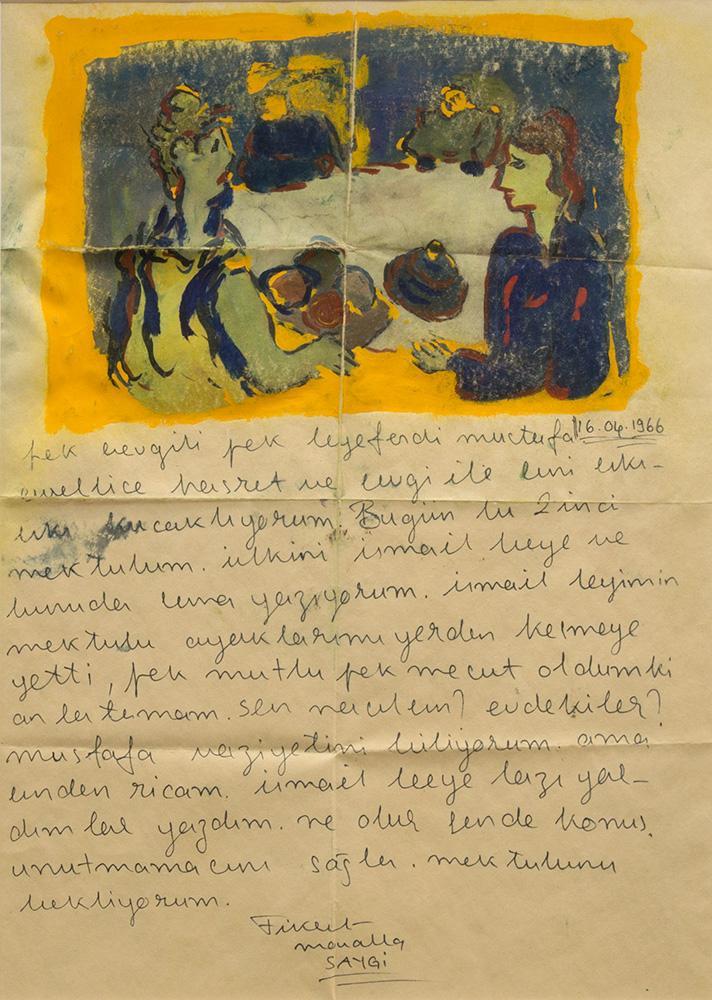 pek sevgili pek beyefendi mustafa 16.04.1966
evvellice hasret ve sevgi ile seni sıkı-
sıkı kucaklıyorum. Bugün bu 2inci
mektubum. ilkini ismail beye ve
bunuda sana yazıyorum. ismail beyimin
mektubu ayaklarımı yerden kesmeye
yetti, pek mutlu pek mesut oldumki
anlatamam. sen nasılsın? evdekiler?
mustafa vaziyetini biliyorum. ama
senden ricam. ismail beye bazı yal-
dımlar yazdım. ne olur sende konuş.
unutmamasını sağla. mektubunu
bekliyorum.
Fikret
moualla
SAYGI